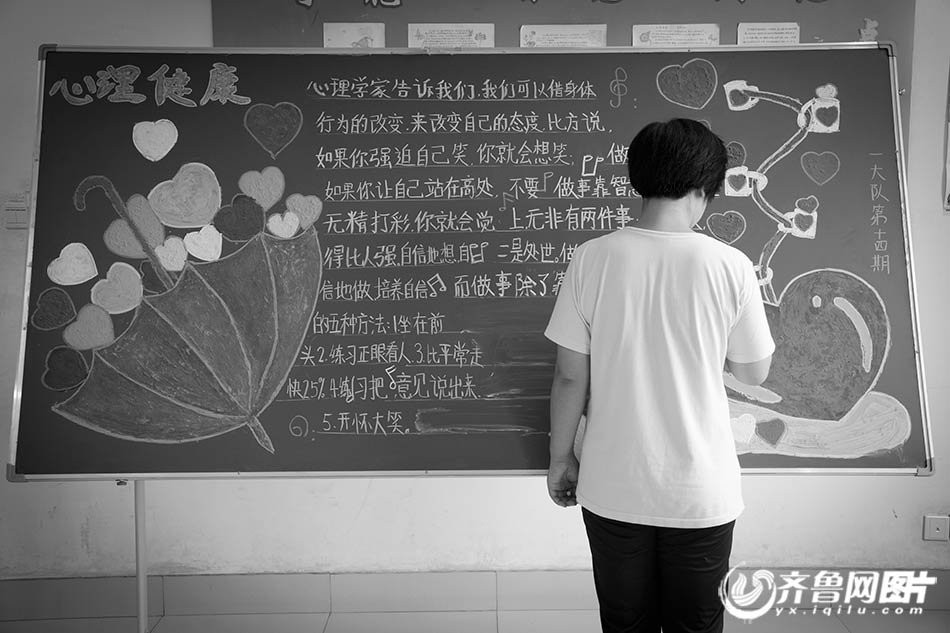 心理健康
心理学家告诉我们,我们可以借身体
行为的改变,来改变自己的态度.比方说,
如果你强迫自己笑,你就会想笑; 做
如果你让自己站在高处, 不要 做事靠智
无精打彩,你就会觉 上无非有两件事
得比人强.自信地想,自 二是处世.做
信地做,培养自信 而做事除了靠
的五种方法:1坐在前
头2.练习正眼看人.3.比平常走
快25%.4练习把 意见说出来.
5.开怀大笑。
一大队第十四期
齐鲁网图片
yx.iqilu.com